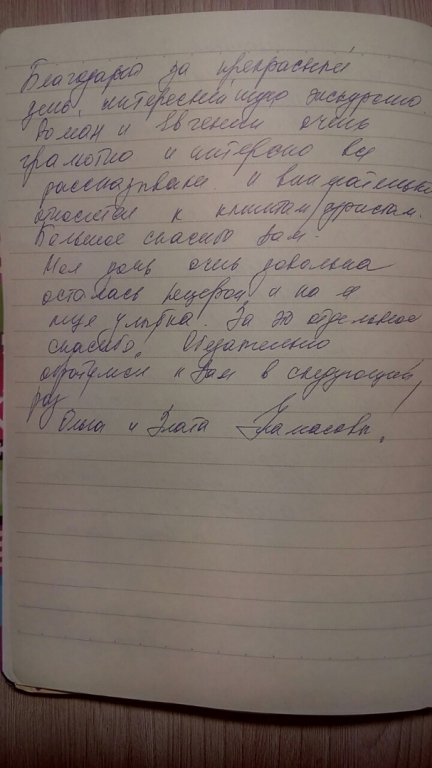 Благодарю за прекрасный
день, интереснейшую экскурсию.
Роман и Евгений очень
грамотно и интересно все
рассказывали и внимательно
относятся к клиентам, туристам.
Большое спасибо Вам!
Моя дочь очень довольна
осталась и на
лице улыбка. За это отдельное
спасибо. Обязательно
обратимся к Вам в следующий
раз
Ольга и Злата